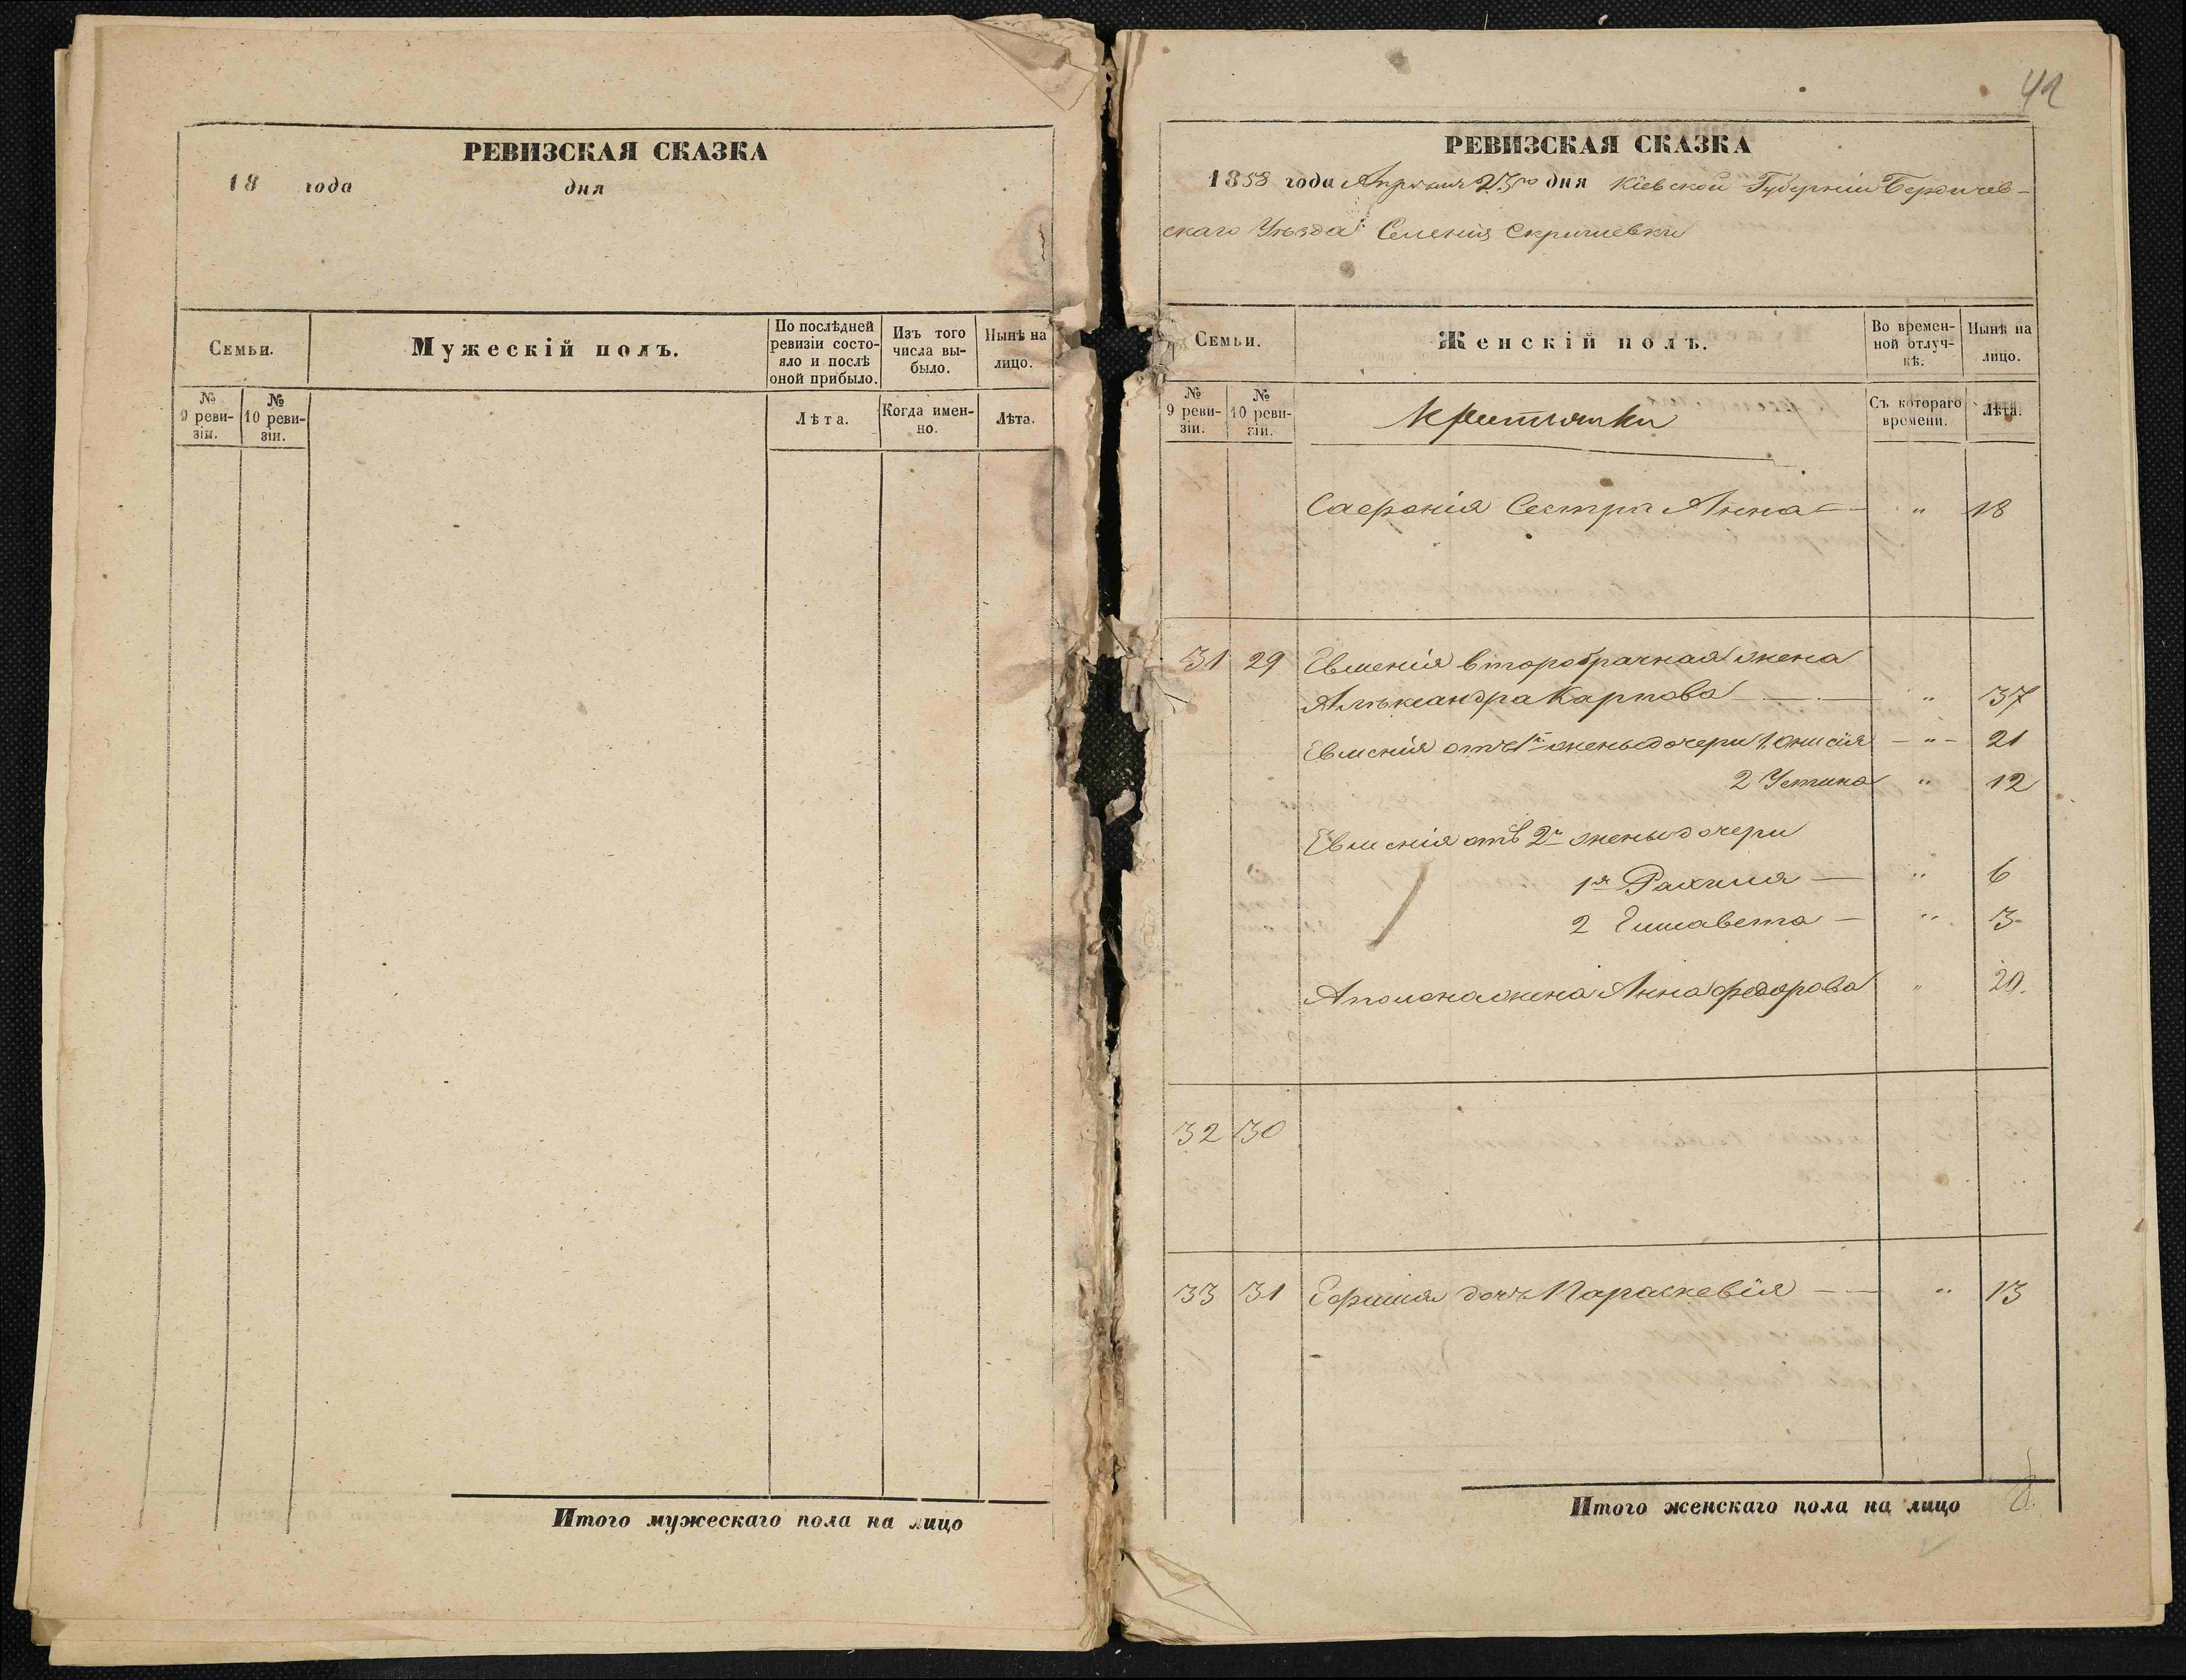 РЕВИЗСКАЯ СКАЗКА
18 года дня
Семьи.
Мужескій полъ.
По послѣдней ревизіи состояло и послѣ оной прибыло.
Изъ того числа выбыло.
Нынѣ на лицо.
№ 9 ревизіи.
№ 10 ревизіи.
Лѣта.
Когда именно.
Лѣта.
Итого мужескаго пола на лицо
42
РЕВИЗСКАЯ СКАЗКА
1858 года Апрѣля 23го дня Кіевской Губерніи Бердичев-
скаго Уѣзда Селенія Скригилевки
Семьи.
Женскій полъ.
Во временной отлучкѣ.
Нынѣ на лицо.
№ 9 ревизіи.
№ 10 ревизіи.
Съ котораго времени.
Лѣта.
Сафронія Сестра Анна — " 18
31 29 Евменія второбрачная жена
Алѣксандра Карпова — " 37
Евменія отъ 1й жены дочери 1. Онисія — " — 21
2 Устина " 12
Евменія отъ 2й жены дочери
1я — " 6
2 Елисавета — " 3
жена Анна Федорова " 20.
32 30
33 31 Ефима дочь Параскевія — — " 13
Итого женскаго пола на лицо 8.